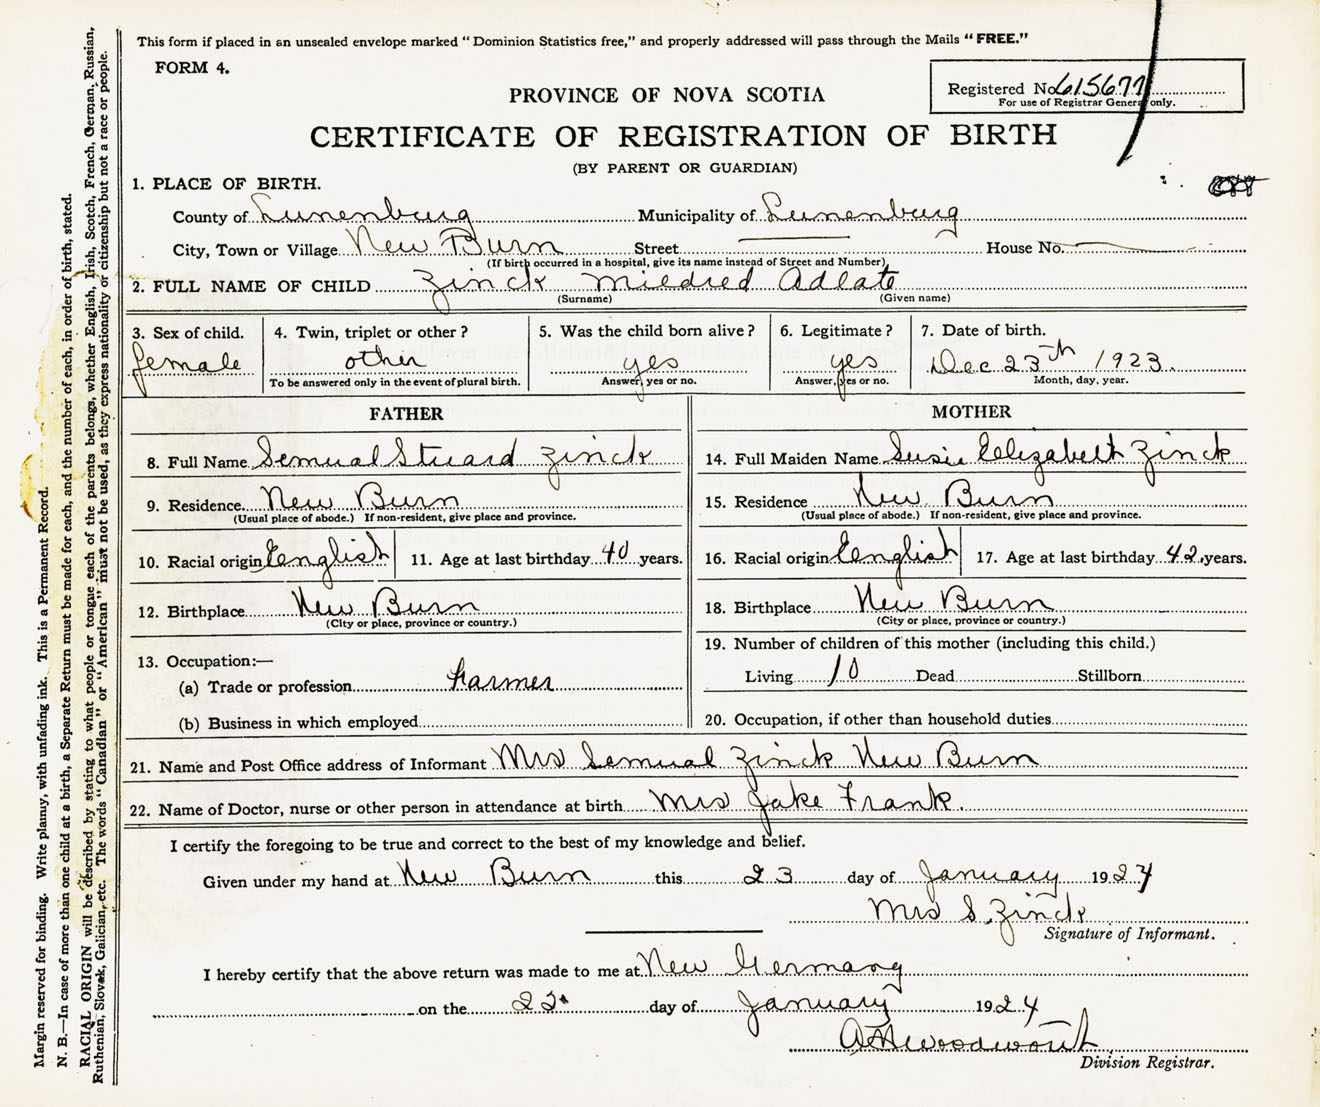 This form if placed in an unsealed envelope marked “Dominion Statistics free,” and properly addressed will pass through the Mails “FREE.”
FORM 4.
Registered No. 615677
For use of Registrar General only.
PROVINCE OF NOVA SCOTIA
CERTIFICATE OF REGISTRATION OF BIRTH
(BY PARENT OR GUARDIAN)
1. PLACE OF BIRTH.
County of Lunenburg Municipality of Lunenburg
City, Town or Village New Burn Street House No.
(If birth occurred in a hospital, give its name instead of Street and Number)
2. FULL NAME OF CHILD Zinck Mildred Adlate
(Surname) (Given name)
3. Sex of child. 4. Twin, triplet or other? 5. Was the child born alive? 6. Legitimate? 7. Date of birth.
female other yes yes Dec 23th 1923.
To be answered only in the event of plural birth. Answer, yes or no. Answer, yes or no. Month, day, year.
FATHER MOTHER
8. Full Name Semual Stuard Zinck 14. Full Maiden Name Susie Elizabelt Zinck
9. Residence New Burn 15. Residence New Burn
(Usual place of abode.) If non-resident, give place and province. (Usual place of abode.) If non-resident, give place and province.
10. Racial origin English 11. Age at last birthday 40 years. 16. Racial origin English 17. Age at last birthday 42 years.
12. Birthplace New Burn 18. Birthplace New Burn
(City or place, province or country.) (City or place, province or country.)
19. Number of children of this mother (including this child.)
13. Occupation:—
(a) Trade or profession farmer Living 10 Dead Stillborn
(b) Business in which employed 20. Occupation, if other than household duties
21. Name and Post Office address of Informant Mrs Semual Zinck New Burn
22. Name of Doctor, nurse or other person in attendance at birth Mrs Jake Frank.
I certify the foregoing to be true and correct to the best of my knowledge and belief.
Given under my hand at New Burn this 23 day of January 1924
Mrs S. Zinck
Signature of Informant.
I hereby certify that the above return was made to me at New Germany
on the day of January 1924
Division Registrar.
Margin reserved for binding. Write plainly, with unfading ink. This is a Permanent Record.
N. B.—In case of more than one child at a birth, a Separate Return must be made for each, and the number of each, in order of birth, stated.
RACIAL ORIGIN will be described by stating to what people or tongue each of the parents belongs, whether English, Irish, Scotch, French, German, Russian,
Ruthenian, Slovak, Galician, etc. The words “Canadian” or “American” must not be used, as they express nationality or citizenship but not a race or people.